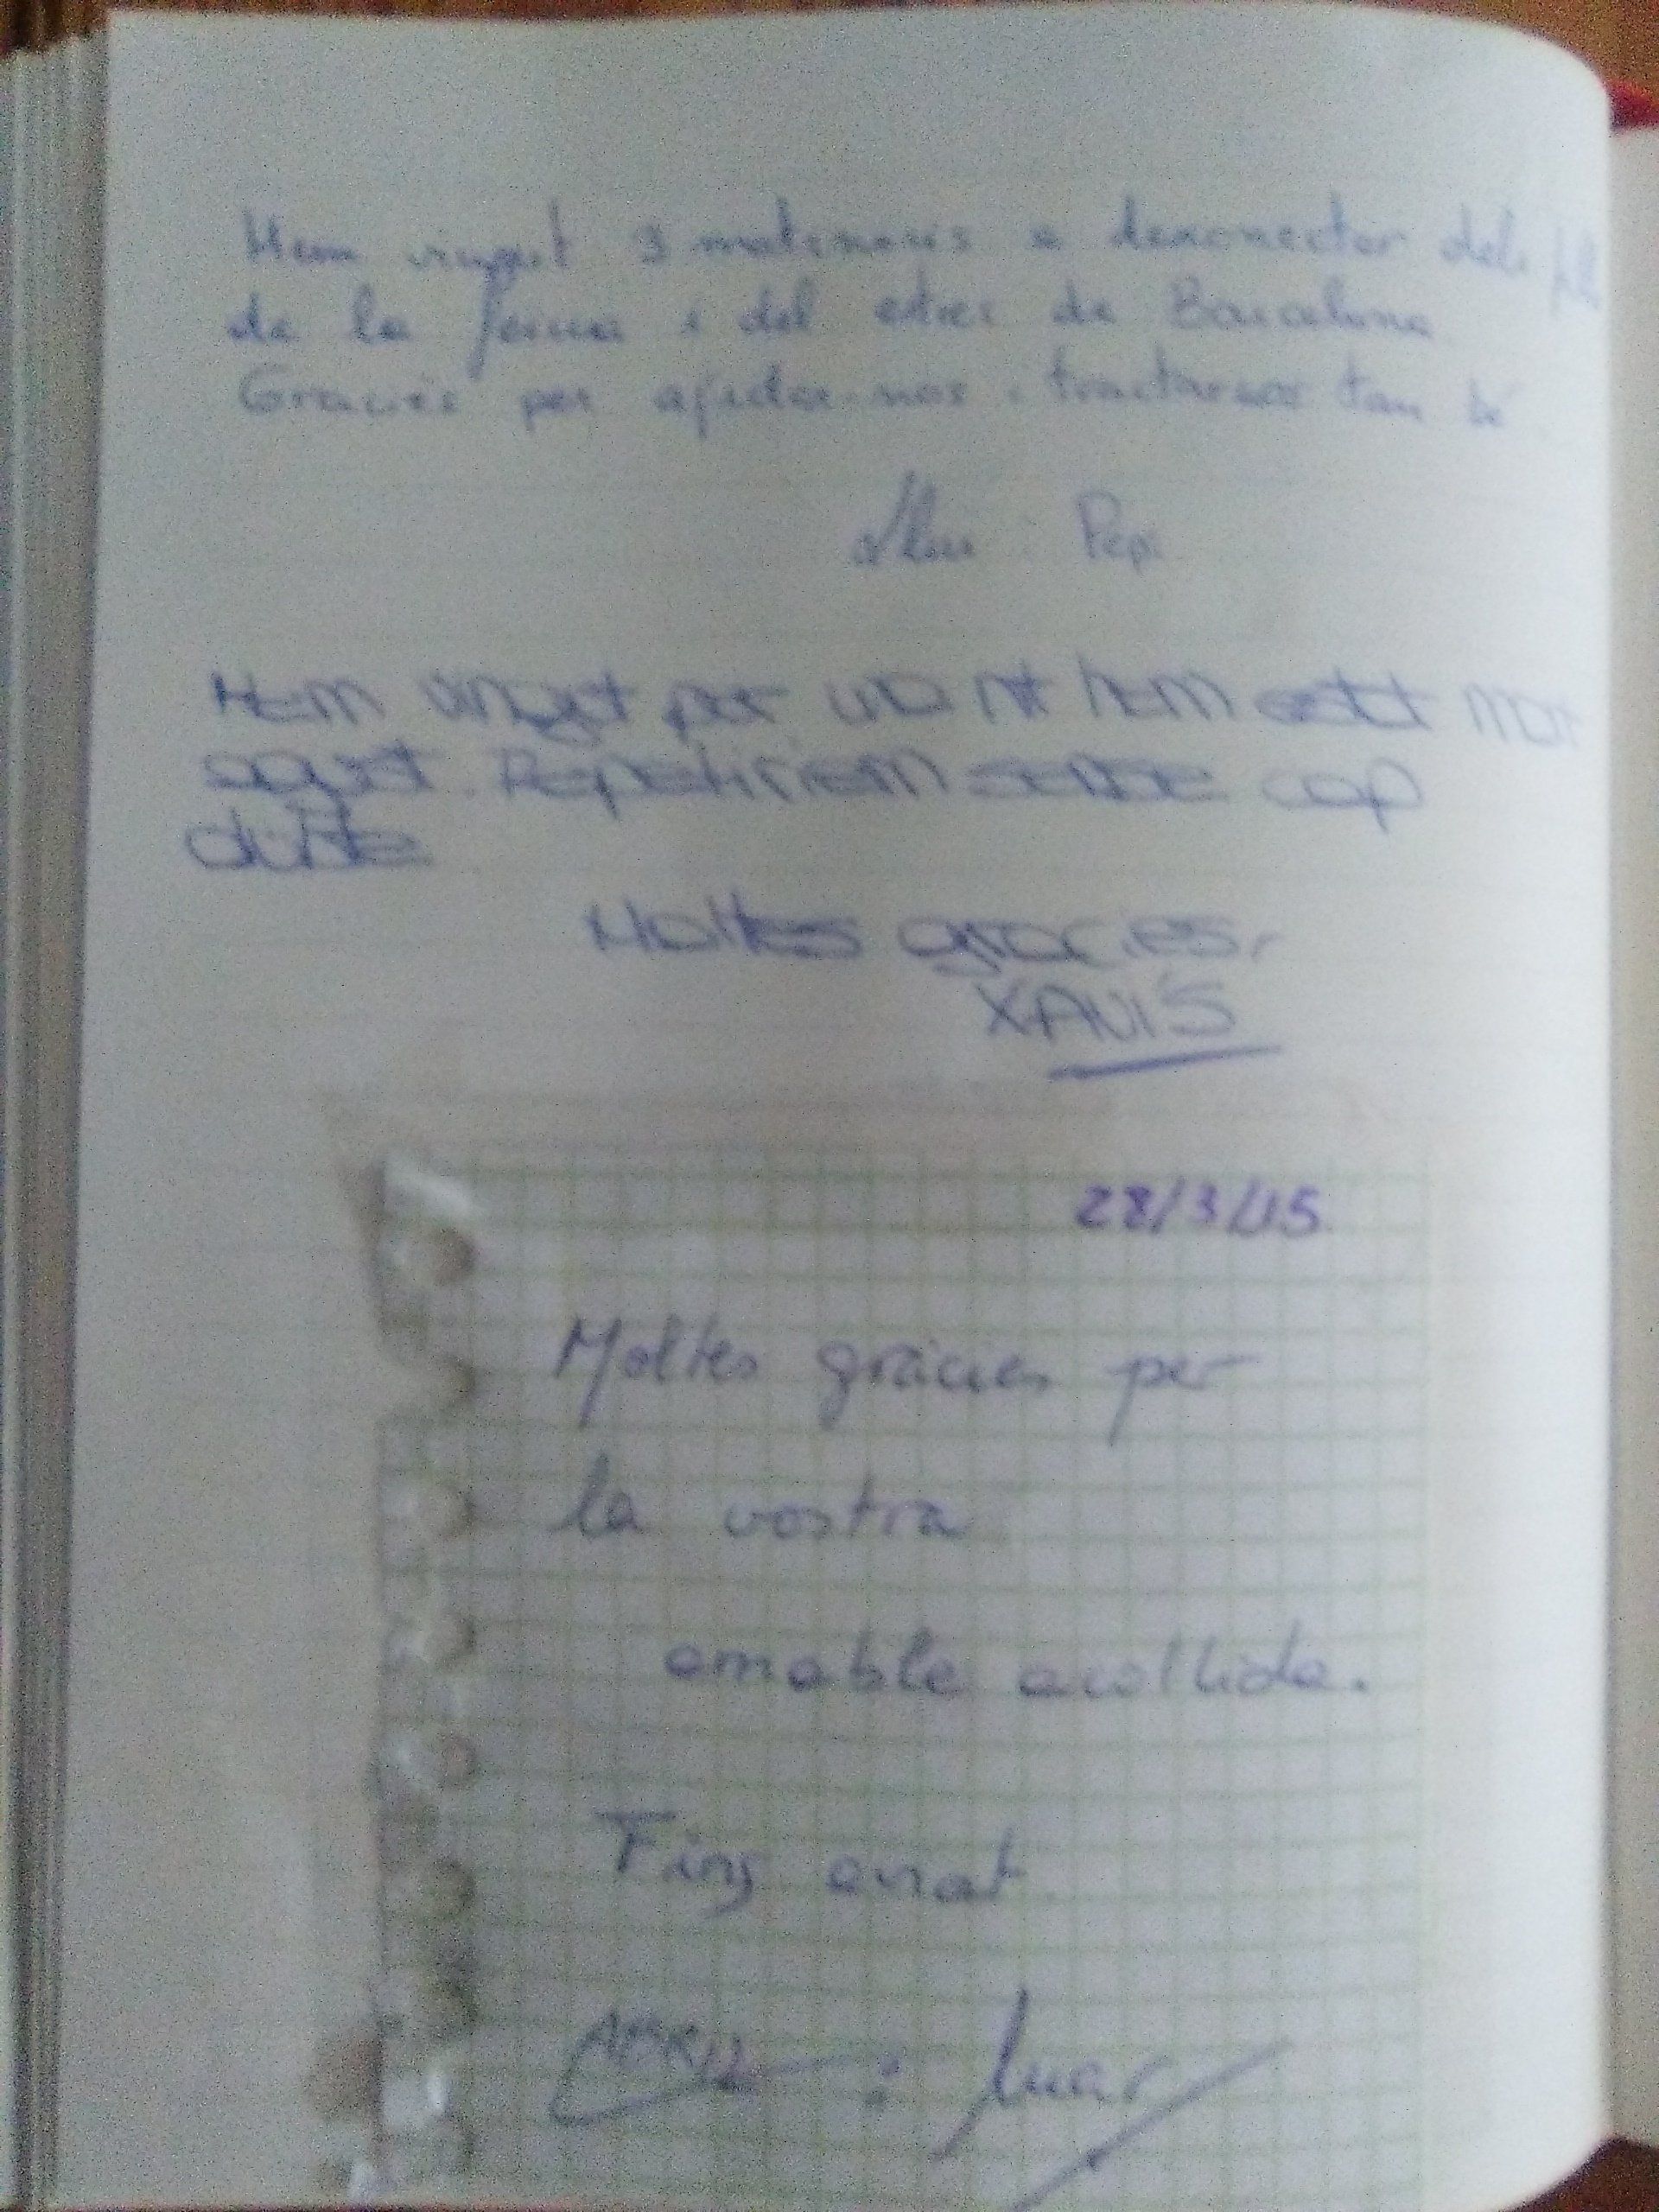 Hem vingut 3 matrimonis a desconectar dels
de la feina i del estres de Barcelona
Gracies per ajudar-nos i tractarnos tan bé
Pepi
Hem vingut per una nit hem estat molt
agust. Repetiriem sense cap
dubte
Moltes gracies,
XAVI'S
28/3/15
Moltes gràcies per
la vostra
amable acollida.
Fins aviat